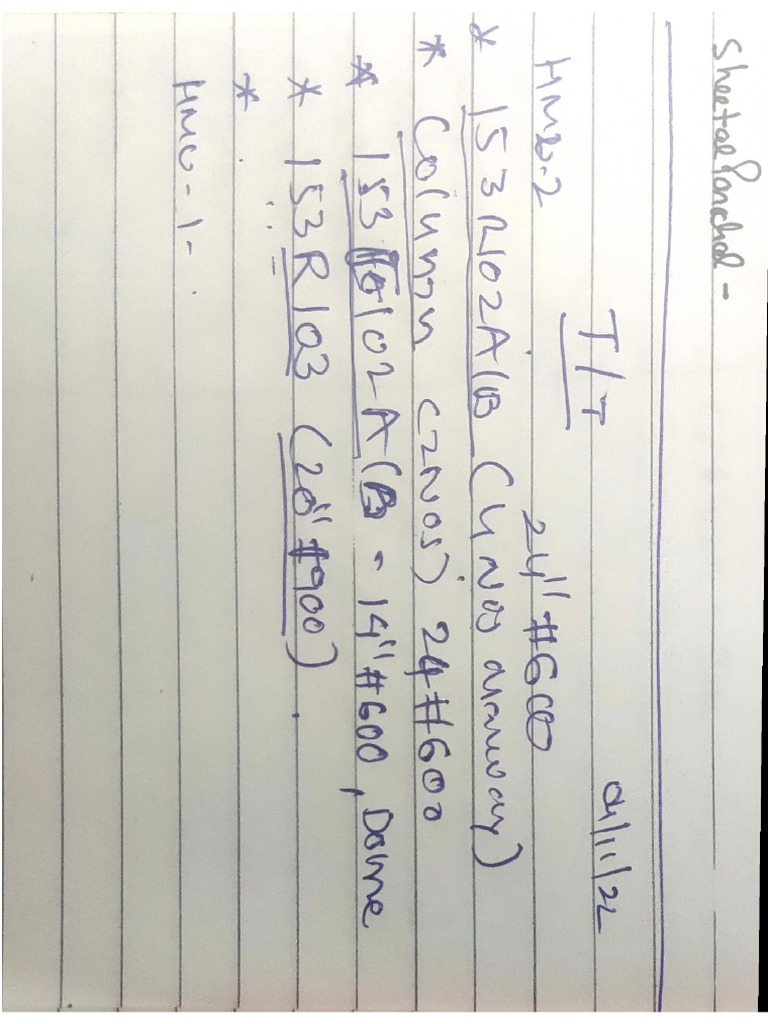 Sheetal Panchal -
T/T 01/11/22
HMU-2 24"#600
* 153R102A/B (4Nos manway)
* Column (2Nos) 24#600
* 153 102A/B - 14"#600, Dome
* 153R103 (20"#900)
*
HMU-1-